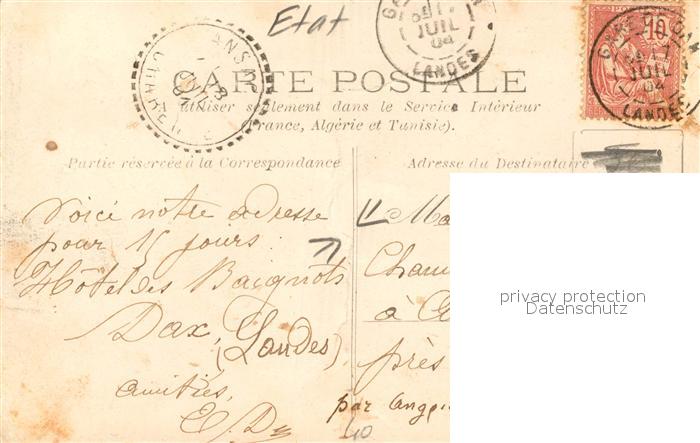 Etat
JUIL
04
LANDES
10
JUIL
04
LANDES
CARTE POSTALE
utiliser seulement dans le Service Intérieur
(France, Algérie et Tunisie).
Partie réservée à la Correspondance
Adresse du Destinataire
Voici notre adresse
pour 15 jours :
Hôtel des Baignots
Dax, (Landes)
amitiés,
à
près
par
40
privacy protection
Datenschutz